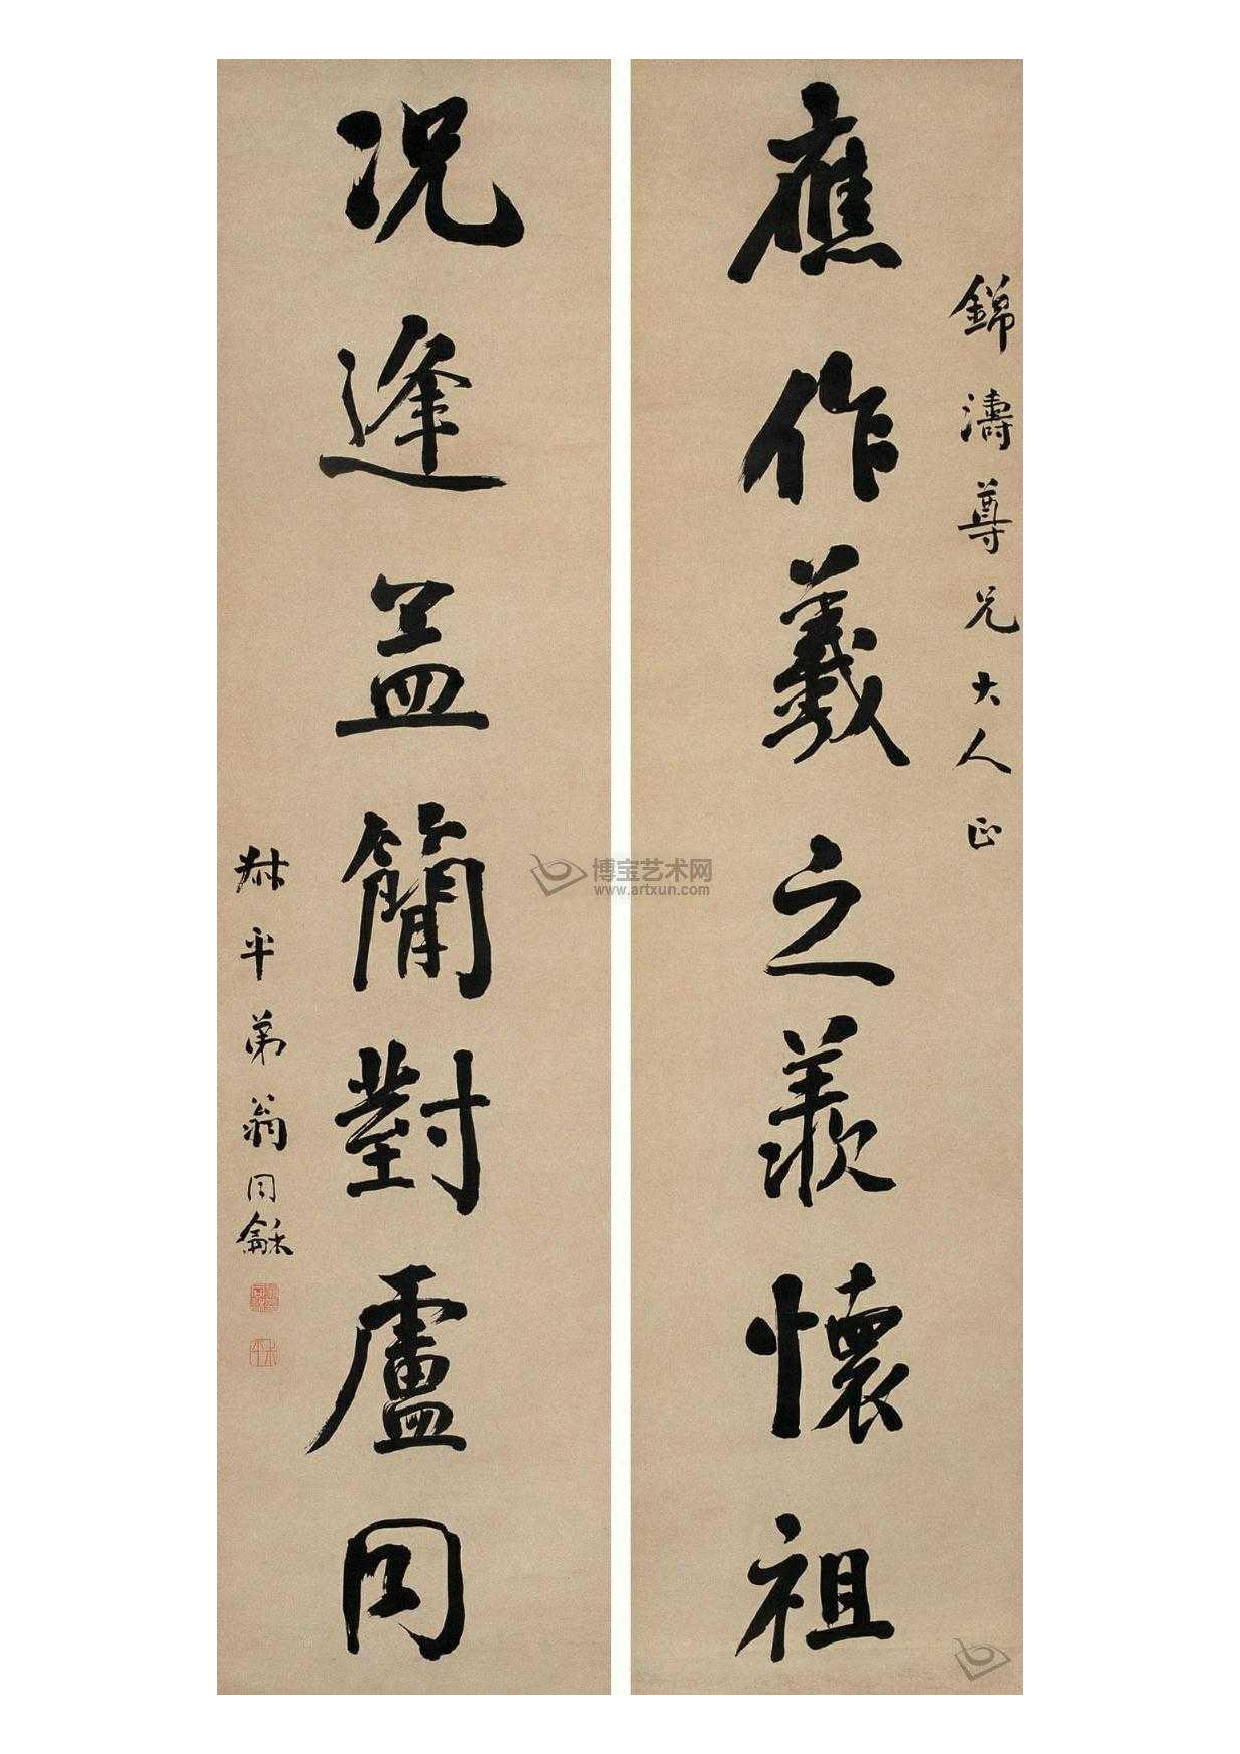 錦濤尊兄大人正
應作羲之羨懷祖
况逢孟簡對盧同
叔平弟翁同龢
博宝艺术网
www.artxun.com